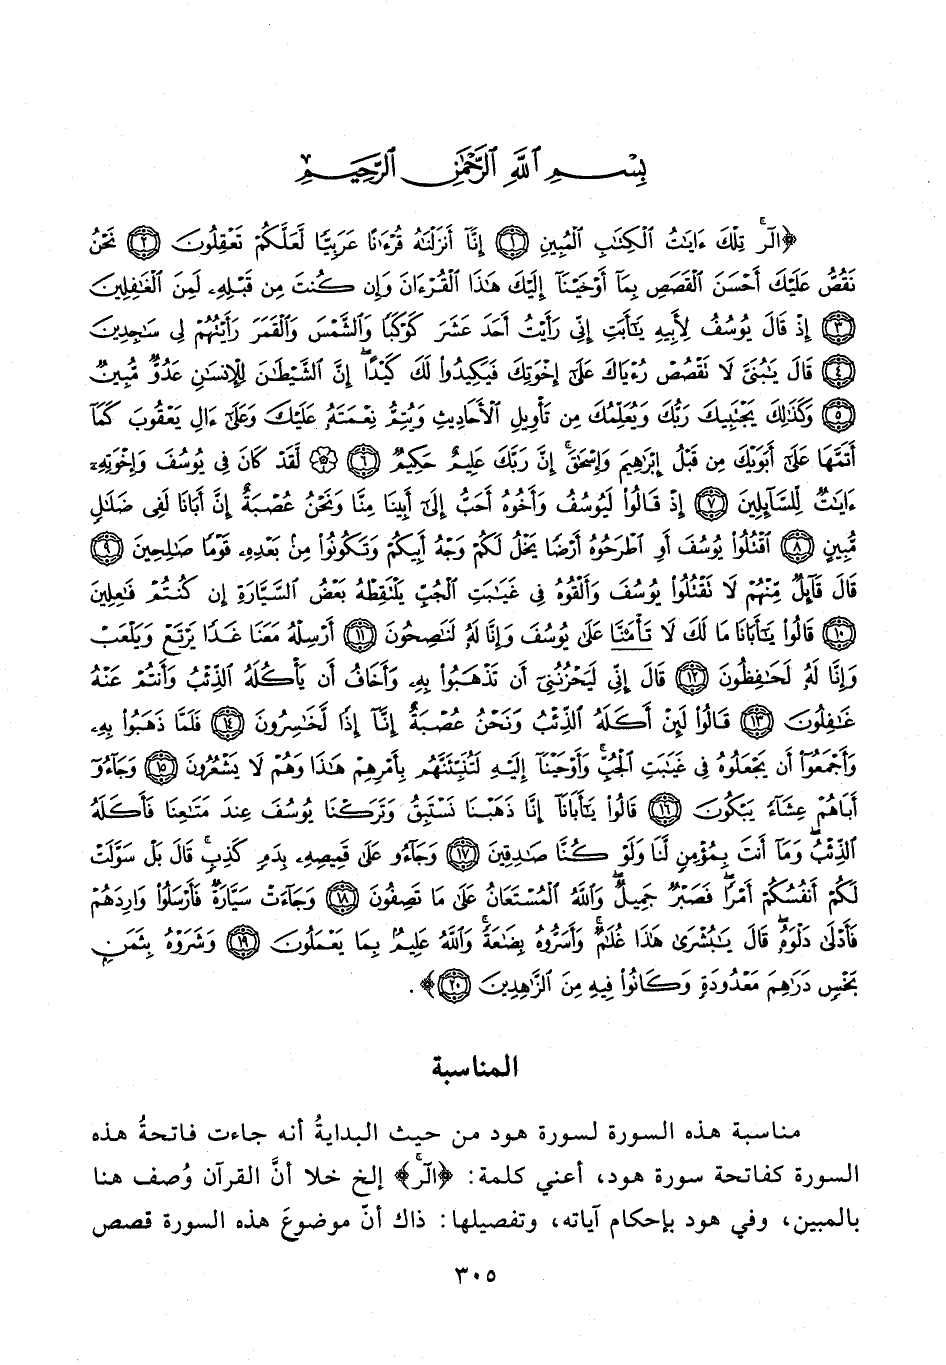 بِسْمِ ٱللَّهِ ٱلرَّحْمَٰنِ ٱلرَّحِيمِ
﴿الٓرۚ تِلْكَ ءَايَٰتُ ٱلْكِتَٰبِ ٱلْمُبِينِ ١ إِنَّآ أَنزَلْنَٰهُ قُرْءَٰنًا عَرَبِيًّا لَّعَلَّكُمْ تَعْقِلُونَ ٢ نَحْنُ
نَقُصُّ عَلَيْكَ أَحْسَنَ ٱلْقَصَصِ بِمَآ أَوْحَيْنَآ إِلَيْكَ هَٰذَا ٱلْقُرْءَانَ وَإِن كُنتَ مِن قَبْلِهِۦ لَمِنَ ٱلْغَٰفِلِينَ
٣ إِذْ قَالَ يُوسُفُ لِأَبِيهِ يَٰٓأَبَتِ إِنِّى رَأَيْتُ أَحَدَ عَشَرَ كَوْكَبًا وَٱلشَّمْسَ وَٱلْقَمَرَ رَأَيْتُهُمْ لِى سَٰجِدِينَ
٤ قَالَ يَٰبُنَىَّ لَا تَقْصُصْ رُءْيَاكَ عَلَىٰٓ إِخْوَتِكَ فَيَكِيدُوا۟ لَكَ كَيْدًاۖ إِنَّ ٱلشَّيْطَٰنَ لِلْإِنسَٰنِ عَدُوٌّ مُّبِينٌ
٥ وَكَذَٰلِكَ يَجْتَبِيكَ رَبُّكَ وَيُعَلِّمُكَ مِن تَأْوِيلِ ٱلْأَحَادِيثِ وَيُتِمُّ نِعْمَتَهُۥ عَلَيْكَ وَعَلَىٰٓ ءَالِ يَعْقُوبَ كَمَآ
أَتَمَّهَا عَلَىٰٓ أَبَوَيْكَ مِن قَبْلُ إِبْرَٰهِيمَ وَإِسْحَٰقَۚ إِنَّ رَبَّكَ عَلِيمٌ حَكِيمٌ ٦ ۞ لَّقَدْ كَانَ فِى يُوسُفَ وَإِخْوَتِهِۦٓ
ءَايَٰتٌ لِّلسَّآئِلِينَ ٧ إِذْ قَالُوا۟ لَيُوسُفُ وَأَخُوهُ أَحَبُّ إِلَىٰٓ أَبِينَا مِنَّا وَنَحْنُ عُصْبَةٌ إِنَّ أَبَانَا لَفِى ضَلَٰلٍ
مُّبِينٍ ٨ ٱقْتُلُوا۟ يُوسُفَ أَوِ ٱطْرَحُوهُ أَرْضًا يَخْلُ لَكُمْ وَجْهُ أَبِيكُمْ وَتَكُونُوا۟ مِنۢ بَعْدِهِۦ قَوْمًا صَٰلِحِينَ ٩
قَالَ قَآئِلٌ مِّنْهُمْ لَا تَقْتُلُوا۟ يُوسُفَ وَأَلْقُوهُ فِى غَيَٰبَتِ ٱلْجُبِّ يَلْتَقِطْهُ بَعْضُ ٱلسَّيَّارَةِ إِن كُنتُمْ فَٰعِلِينَ
١٠ قَالُوا۟ يَٰٓأَبَانَا مَا لَكَ لَا تَأْمَ۫نَّا عَلَىٰ يُوسُفَ وَإِنَّا لَهُۥ لَنَٰصِحُونَ ١١ أَرْسِلْهُ مَعَنَا غَدًا يَرْتَعْ وَيَلْعَبْ
وَإِنَّا لَهُۥ لَحَٰفِظُونَ ١٢ قَالَ إِنِّى لَيَحْزُنُنِىٓ أَن تَذْهَبُوا۟ بِهِۦ وَأَخَافُ أَن يَأْكُلَهُ ٱلذِّئْبُ وَأَنتُمْ عَنْهُ
غَٰفِلُونَ ١٣ قَالُوا۟ لَئِنْ أَكَلَهُ ٱلذِّئْبُ وَنَحْنُ عُصْبَةٌ إِنَّآ إِذًا لَّخَٰسِرُونَ ١٤ فَلَمَّا ذَهَبُوا۟ بِهِۦ
وَأَجْمَعُوٓا۟ أَن يَجْعَلُوهُ فِى غَيَٰبَتِ ٱلْجُبِّۚ وَأَوْحَيْنَآ إِلَيْهِ لَتُنَبِّئَنَّهُم بِأَمْرِهِمْ هَٰذَا وَهُمْ لَا يَشْعُرُونَ ١٥ وَجَآءُوٓ
أَبَاهُمْ عِشَآءً يَبْكُونَ ١٦ قَالُوا۟ يَٰٓأَبَانَآ إِنَّا ذَهَبْنَا نَسْتَبِقُ وَتَرَكْنَا يُوسُفَ عِندَ مَتَٰعِنَا فَأَكَلَهُ
ٱلذِّئْبُۖ وَمَآ أَنتَ بِمُؤْمِنٍ لَّنَا وَلَوْ كُنَّا صَٰدِقِينَ ١٧ وَجَآءُو عَلَىٰ قَمِيصِهِۦ بِدَمٍ كَذِبٍۚ قَالَ بَلْ سَوَّلَتْ
لَكُمْ أَنفُسُكُمْ أَمْرًاۖ فَصَبْرٌ جَمِيلٌۖ وَٱللَّهُ ٱلْمُسْتَعَانُ عَلَىٰ مَا تَصِفُونَ ١٨ وَجَآءَتْ سَيَّارَةٌ فَأَرْسَلُوا۟ وَارِدَهُمْ
فَأَدْلَىٰ دَلْوَهُۥۖ قَالَ يَٰبُشْرَىٰ هَٰذَا غُلَٰمٌۚ وَأَسَرُّوهُ بِضَٰعَةًۚ وَٱللَّهُ عَلِيمٌۢ بِمَا يَعْمَلُونَ ١٩ وَشَرَوْهُ بِثَمَنٍۭ
بَخْسٍ دَرَٰهِمَ مَعْدُودَةٍ وَكَانُوا۟ فِيهِ مِنَ ٱلزَّٰهِدِينَ ٢٠﴾.
المناسبة
مناسبة هذه السورة لسورة هود من حيث البدايةُ أنه جاءت فاتحةُ هذه
السورة كفاتحة سورة هود، أعني كلمة: ﴿الٓرۚ﴾ إلخ خلا أنَّ القرآن وُصف هنا
بالمبين، وفي هود بإحكام آياته، وتفصيلها: ذاك أنّ موضوعَ هذه السورة قصص
٣٠٥